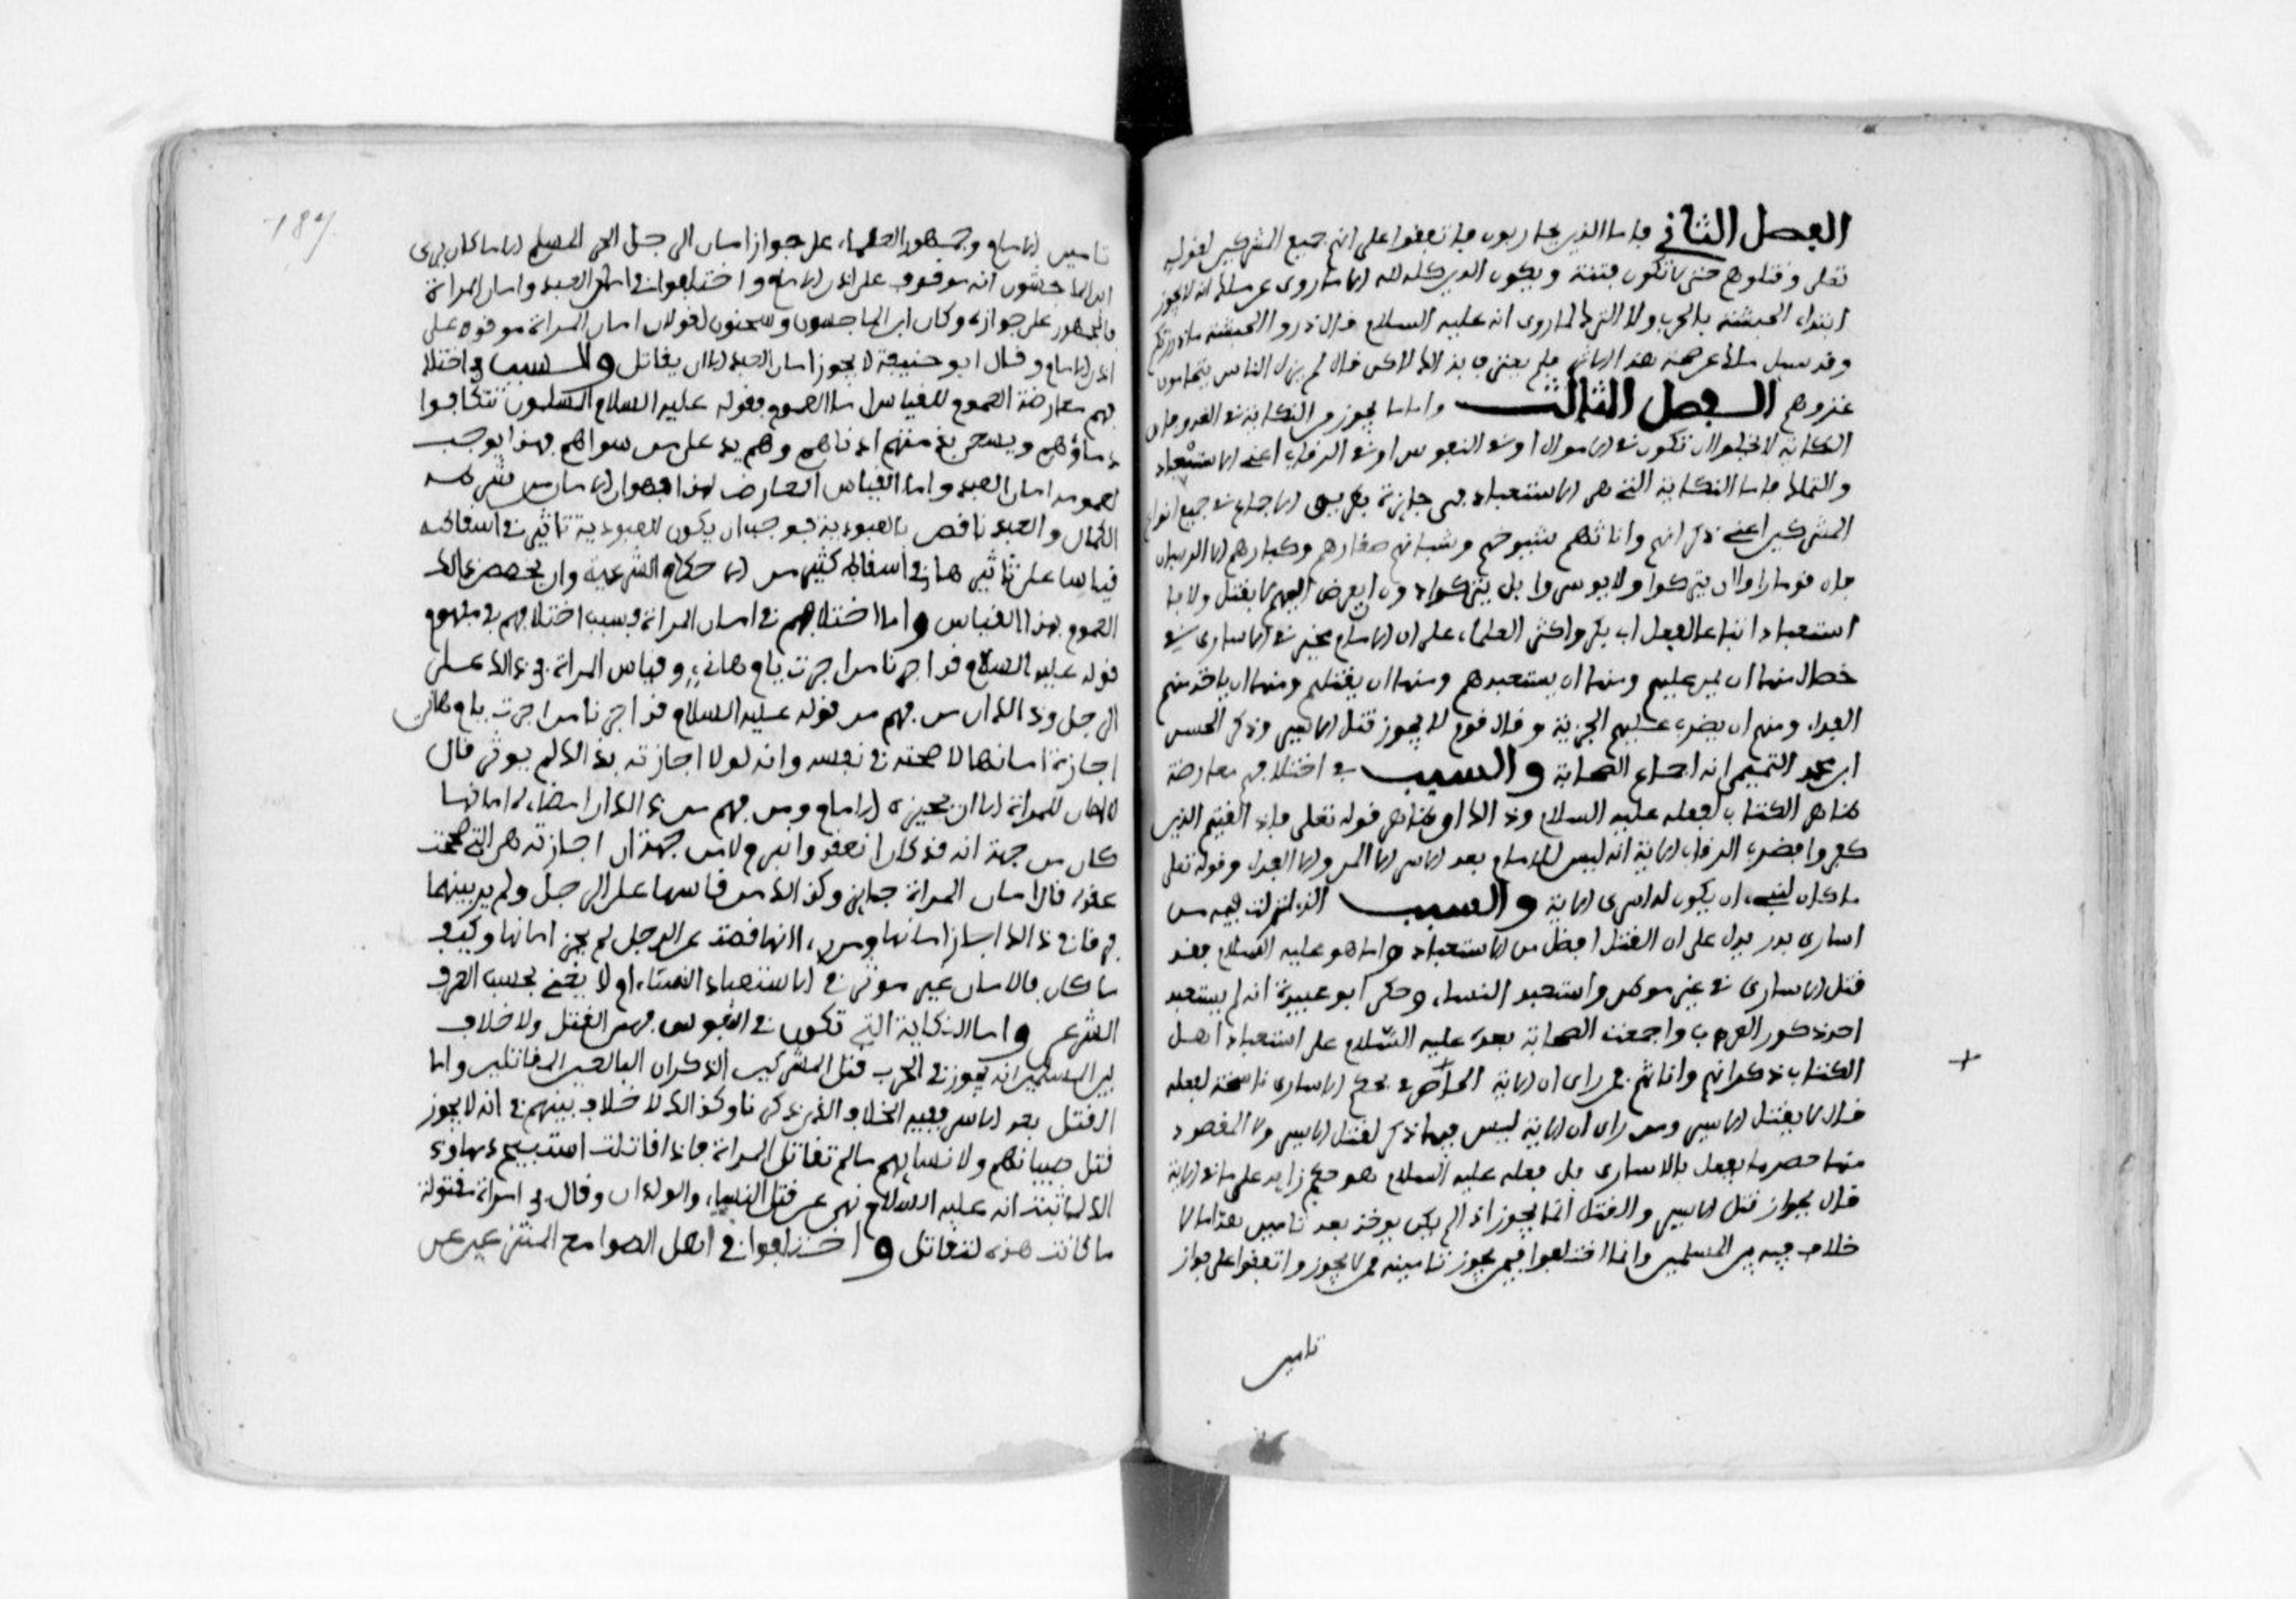 الفصل الثاني فاما الذين يحاربون فاتفقوا على انهم جميع المشركين لقوله
تعلى وقتلوهم حتى لا تكون فتنة ويكون الدين كله لله الا ما روى عن ملك انه لا يجوز
ابتداء الحبشة بالحرب ولا الترك لما روى انه عليه السلام قال ذروا الحبشة ما وذرتكم
وقد سيل ملك عن صحة هذا الاثر فلم يعترف بذلك لاكن قال لم يزل الناس يتحامون
غزوهم الفصل الثالث واما ما يجوز من النكاية في العدو فان
النكاية لا تخلوا ان تكون في الاموال او في النفوس او في الرقاب اعنى الاستعباد
والتملك فاما النكاية التي هي الاستعباد فهى جايزة بطريق الاجماع في جميع انواع
المشركين اعنى ذكرانهم واناثهم شيوخهم وشبانهم صغارهم وكبارهم الا الرهبان
فان قوما راوا ان يتركوا ولا يوسروا بل يتركوا دون ان يعرض اليهم لا بقتل ولا با
استعباد اتباعا لفعل ابى بكر واكثر العلماء على ان الامام مخير في الاسارى في
خصال منها ان يمن عليهم ومنها ان يستعبدهم ومنها ان يقتلهم ومنها ان ياخذ منهم
الفداء ومنها ان يضرب عليهم الجزية وقال قوم لا يجوز قتل الاسير وذكر الحسن
ابن محمد التميمى انه اجماع الصحابة والسبب في اختلافهم معارضة
ظاهر الكتاب لفعله عليه السلام وذلك ان ظاهر قوله تعلى فاذا لقيتم الذين
كفروا فضرب الرقاب الاية انه ليس للامام بعد الاسر الا المن والا الفداء وقوله تعلى
ما كان لنبىء ان يكون له اسرى الاية والسبب الذى نزلت فيه من
اسارى بدر يدل على ان القتل افضل من الاستعباد واما هو عليه السلام فقد
قتل الاسارى في غير موطن واستعبد النساء وحكى ابو عبيدة انه لم يستعبد
احرار ذكور العرب واجمعت الصحابة بعده عليه السلام على استعباد اهل
الكتاب ذكرانهم واناثهم فمن راى ان الاية الخاصة بحكم الاسارى ناسخة لفعله
قال لا يقتل الاسير ومن راى ان الاية ليس فيها ذكر لقتل الاسير ولا المقصود
منها حصر ما يفعل بالاسارى بل فعله عليه السلام هو حكم زايد على ما في الاية
قال بجواز قتل الاسير والقتل انما يجوز اذا لم يكن يوخذ بعد تامين وهذا ما لا
خلاف فيه بين المسلمين وانما اختلفوا فيمن يجوز تامينه ممن لا يجوز واتفقوا على جواز
تامين
تامين الامام وجمهور العلماء على جواز امان الرجل الحر المسلم الا ما كان يرى
ابن الماجشون انه موقوف على اذن الامام واختلفوا في امان العبد وامان المراة
فالجمهور على جوازه وكان ابن الماجشون وسحنون يقولان امان المراة موقوف على
اذن الامام وقال ابو حنيفة لا يجوز امان العبد الا ان يقاتل والسبب في اختلا
فهم معارضة العموم للقياس اما العموم فقوله عليه السلام المسلمون تتكافوا
دماؤهم ويسعى بذمتهم ادناهم وهم يد على من سواهم فهذا يوجب
بعمومه امان العبد واما القياس المعارض لهذا فهو ان الامان من شرطه
الكمال والعبد ناقص بالعبودية فوجب ان يكون للعبودية تاثير في اسقاطه
قياسا على تاثيرها في اسقاط كثير من الاحكام الشرعية وان يخصص ذالك
العموم بهذا القياس واما اختلافهم في امان المراة فسبب اختلافهم في مفهوم
قوله عليه السلام قد اجرنا من اجرت يا ام هانىء وقياس المراة في ذالك على
الرجل وذالك ان من فهم من قوله عليه السلام قد اجرنا من اجرت يا ام هانى
اجازة امانها لا صحته في نفسه وانه لولا اجازته بذالك لم يوثر قال
لا امان للمراة الا ان يجيزه الامام ومن فهم من ذالك ان امضاءه امانها
كان من جهة انه قد كان انعقد واثر لا من جهة ان اجازته هى التي صححت
عقده قال امان المراة جايز وكذالك من قاسها على الرجل ولم ير بينهما
فرقا في ذالك اجاز امانها ومن راى انها ناقصة عن الرجل لم يجز امانها وكيف
ما كان فالامان غير موثر في الاستعباد وانما يوثر في القتل
الشرعى واما النكاية التي تكون في النفوس فهى القتل ولا خلاف
بين المسلمين انه يجوز في الحرب قتل المشركين الذكران البالغين المقاتلين واما
القتل بعد الاسر ففيه الخلاف الذى ذكرنا وكذالك لا خلاف بينهم في انه لا يجوز
قتل صبيانهم ولا نسايهم ما لم تقاتل المراة فاذا قاتلت استبيح دمها وذ
الك لما ثبت انه عليه السلام نهى عن قتل النساء والولدان وقال في امراة مقتولة
ما كانت هذه لتقاتل واختلفوا في اهل الصوامع المنتزعين عن